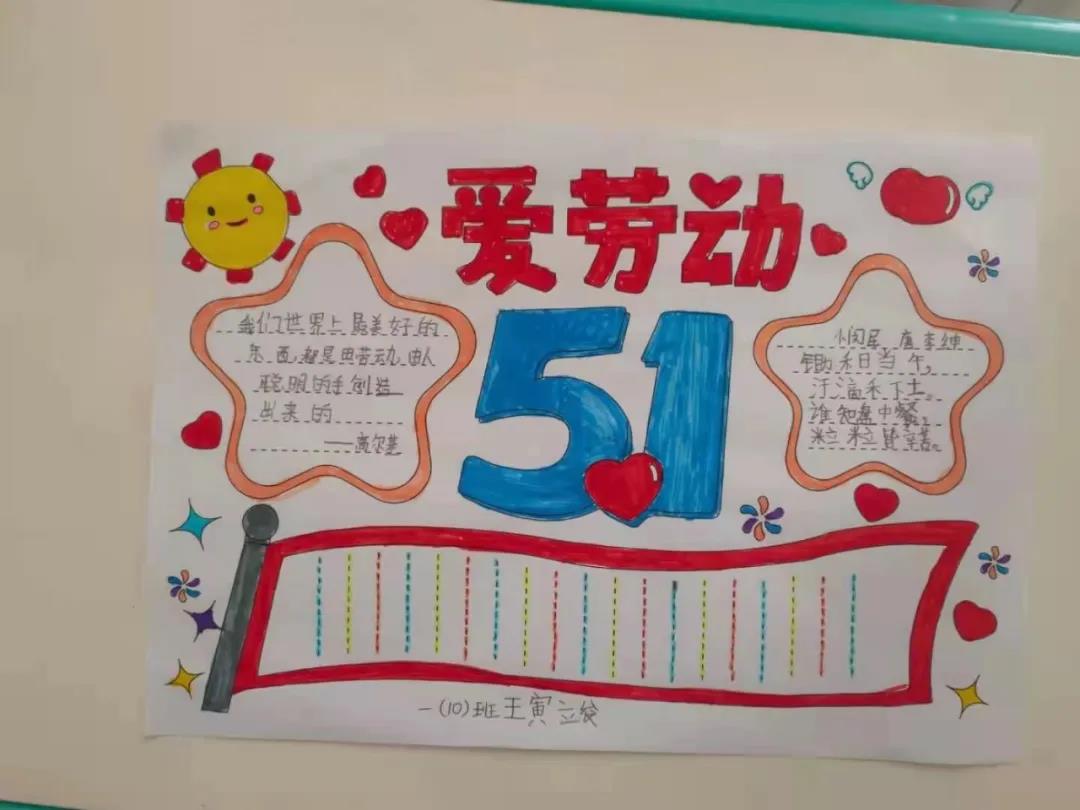 爱劳动
5.1
我们世界上最美好的
东西都是由劳动、由人
聪明的手创造
出来的
——高尔基
悯农 唐 李绅
锄禾日当午,
汗滴禾下土。
谁知盘中餐,
粒粒皆辛苦。
一(10)班王寅